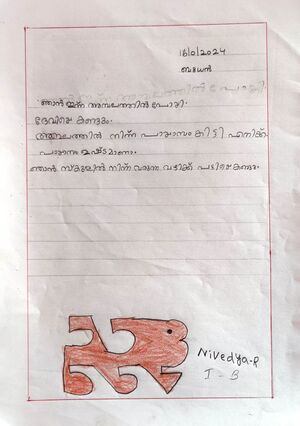 16/0/2024
ബുധൻ
ഞാൻ ഇന്ന് അമ്പലത്തിൽ പോയി.
ദേവിയെ കണ്ടു.
അമ്പലത്തിൽ നിന്ന് പായസം കിട്ടി എനിക്ക്
പായസം ഇഷ്ടമാണ്.
ഞാൻ സ്കൂളിൽ നിന്ന് വരുന്ന വഴിക്ക് പട്ടിയെ കണ്ടു.
Nivedya-P
I - B